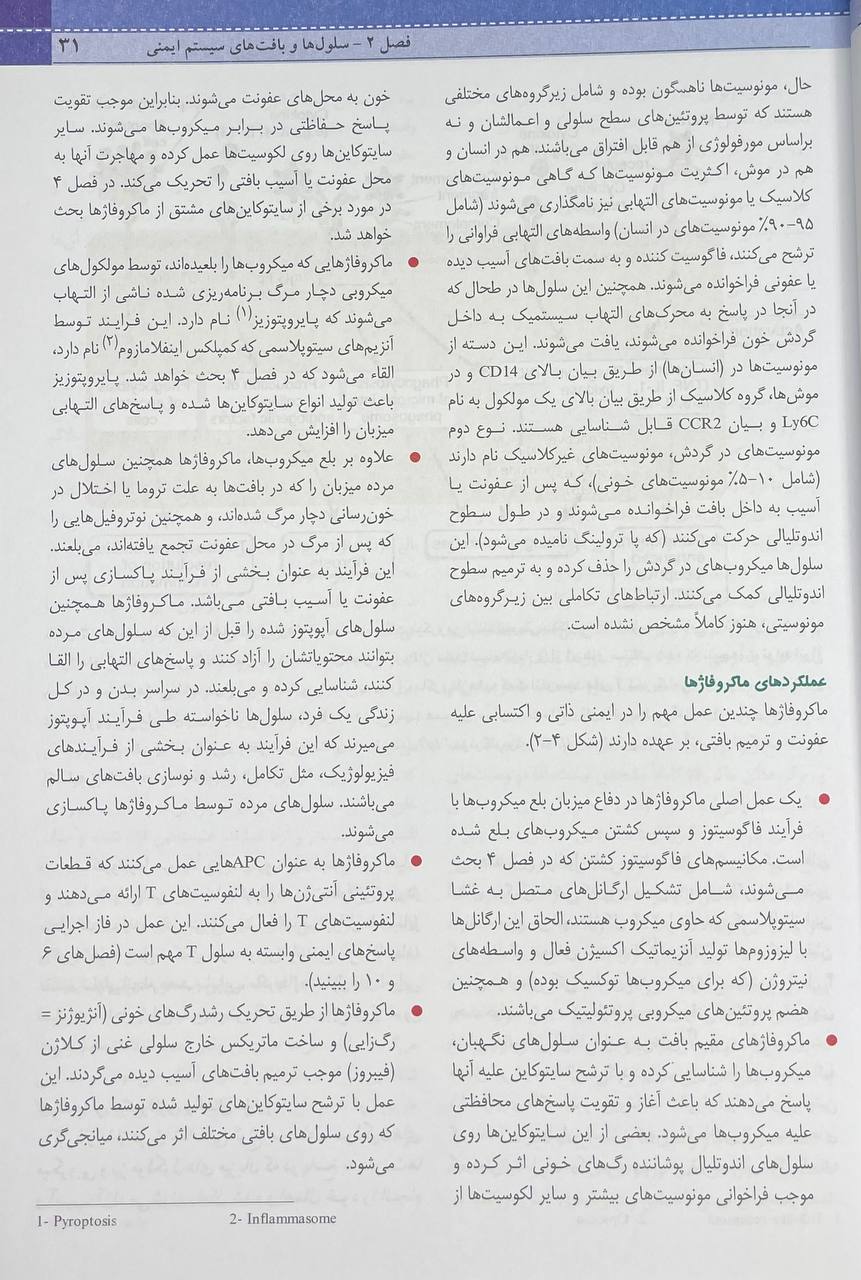 فصل ۲ – سلول‌ها و بافت‌های سیستم ایمنی ۳۱
حال، مونوسیت‌ها ناهمگون بوده و شامل زیرگروه‌های مختلفی
هستند که توسط پروتئین‌های سطح سلولی و اعمالشان و نه
براساس مورفولوژی از هم قابل افتراق می‌باشند. هم در انسان و
هم در موش، اکثریت مونوسیت‌ها که گاهی مونوسیت‌های
کلاسیک یا مونوسیت‌های التهابی نیز نامگذاری می‌شوند (شامل
۹۵–۹۰٪ مونوسیت‌های در انسان) واسطه‌های التهابی فراوانی را
ترشح می‌کنند، فاگوسیت کننده و به سمت بافت‌های آسیب دیده
یا عفونی فراخوانده می‌شوند. همچنین این سلول‌ها در طحال که
در آنجا در پاسخ به محرک‌های التهاب سیستمیک به داخل
گردش خون فراخوانده می‌شوند، یافت می‌شوند. این دسته از
مونوسیت‌ها در (انسان‌ها) از طریق بیان بالای CD14 و در
موش‌ها، گروه کلاسیک از طریق بیان بالای یک مولکول به نام
Ly6C و بیان CCR2 قابل شناسایی هستند. نوع دوم
مونوسیت‌های در گردش، مونوسیت‌های غیرکلاسیک نام دارند
(شامل ۱۰–۵٪ مونوسیت‌های خونی)، که پس از عفونت یا
آسیب به داخل بافت فراخوانده می‌شوند و در طول سطوح
اندوتلیالی حرکت می‌کنند (که پا ترولینگ نامیده می‌شود). این
سلول‌ها میکروب‌های در گردش را حذف کرده و به ترمیم سطوح
اندوتلیالی کمک می‌کنند. ارتباط‌های تکاملی بین زیرگروه‌های
مونوسیتی، هنوز کاملاً مشخص نشده است.
عملکردهای ماکروفاژها
ماکروفاژها چندین عمل مهم را در ایمنی ذاتی و اکتسابی علیه
عفونت و ترمیم بافتی، بر عهده دارند (شکل ۴–۲).
● یک عمل اصلی ماکروفاژها در دفاع میزبان بلع میکروب‌ها با
فرآیند فاگوسیتوز و سپس کشتن میکروب‌های بلع شده
است. مکانیسم‌های فاگوسیتوز کشتن که در فصل ۴ بحث
می‌شوند، شامل تشکیل ارگانل‌های متصل به غشا
سیتوپلاسمی که حاوی میکروب هستند، الحاق این ارگانل‌ها
با لیزوزوم‌ها تولید آنزیماتیک اکسیژن فعال و واسطه‌های
نیتروژن (که برای میکروب‌ها توکسیک بوده) و همچنین
هضم پروتئین‌های میکروبی پروتئولیتیک می‌باشند.
● ماکروفاژهای مقیم بافت به عنوان سلول‌های نگهبان،
میکروب‌ها را شناسایی کرده و با ترشح سایتوکاین علیه آنها
پاسخ می‌دهند که باعث آغاز و تقویت پاسخ‌های محافظتی
علیه میکروب‌ها می‌شود. بعضی از این سایتوکاین‌ها روی
سلول‌های اندوتلیال پوشاننده رگ‌های خونی اثر کرده و
موجب فراخوانی مونوسیت‌های بیشتر و سایر لکوسیت‌ها از
خون به محل‌های عفونت می‌شوند. بنابراین موجب تقویت
پاسخ حفاظتی در برابر میکروب‌ها می‌شوند. سایر
سایتوکاین‌ها روی لکوسیت‌ها عمل کرده و مهاجرت آنها به
محل عفونت یا آسیب بافتی را تحریک می‌کند. در فصل ۴
در مورد برخی از سایتوکاین‌های مشتق از ماکروفاژها بحث
خواهد شد.
● ماکروفاژهایی که میکروب‌ها را بلعیده‌اند، توسط مولکول‌های
میکروبی دچار مرگ برنامه‌ریزی شده ناشی از التهاب
می‌شوند که پایروپتوزیز(۱) نام دارد. این فرایند توسط
آنزیم‌های سیتوپلاسمی که کمپلکس اینفلامازوم(۲) نام دارد،
القاء می‌شود که در فصل ۴ بحث خواهد شد. پایروپتوزیز
باعث تولید انواع سایتوکاین‌ها شده و پاسخ‌های التهابی
میزبان را افزایش می‌دهد.
● علاوه بر بلع میکروب‌ها، ماکروفاژها همچنین سلول‌های
مرده میزبان را که در بافت‌ها به علت تروما یا اختلال در
خون‌رسانی دچار مرگ شده‌اند، و همچنین نوتروفیل‌هایی را
که پس از مرگ در محل عفونت تجمع یافته‌اند، می‌بلعند.
این فرآیند به عنوان بخشی از فرآیند پاکسازی پس از
عفونت یا آسیب بافتی می‌باشد. ماکروفاژها همچنین
سلول‌های آپوپتوز شده را قبل از این که سلول‌های مرده
بتوانند محتویاتشان را آزاد کنند و پاسخ‌های التهابی را القا
کنند، شناسایی کرده و می‌بلعند. در سراسر بدن و در کل
زندگی یک فرد، سلول‌ها ناخواسته طی فرآیند آپوپتوز
می‌میرند که این فرآیند به عنوان بخشی از فرآیندهای
فیزیولوژیک، مثل تکامل، رشد و نوسازی بافت‌های سالم
می‌باشند. سلول‌های مرده توسط ماکروفاژها پاکسازی
می‌شوند.
● ماکروفاژها به عنوان APCهایی عمل می‌کنند که قطعات
پروتئینی آنتی‌ژن‌ها را به لنفوسیت‌های T ارائه می‌دهند و
لنفوسیت‌های T را فعال می‌کنند. این عمل در فاز اجرایی
پاسخ‌های ایمنی وابسته به سلول T مهم است (فصل‌های ۶
و ۱۰ را ببینید).
● ماکروفاژها از طریق تحریک رشد رگ‌های خونی (آنژیوژنز =
رگ‌زایی) و ساخت ماتریکس خارج سلولی غنی از کلاژن
(فیبروز) موجب ترمیم بافت‌های آسیب دیده می‌گردند. این
عمل با ترشح سایتوکاین‌های تولید شده توسط ماکروفاژها
که روی سلول‌های بافتی مختلف اثر می‌کنند، میانجی‌گری
می‌شود.
1- Pyroptosis 2- Inflammasome